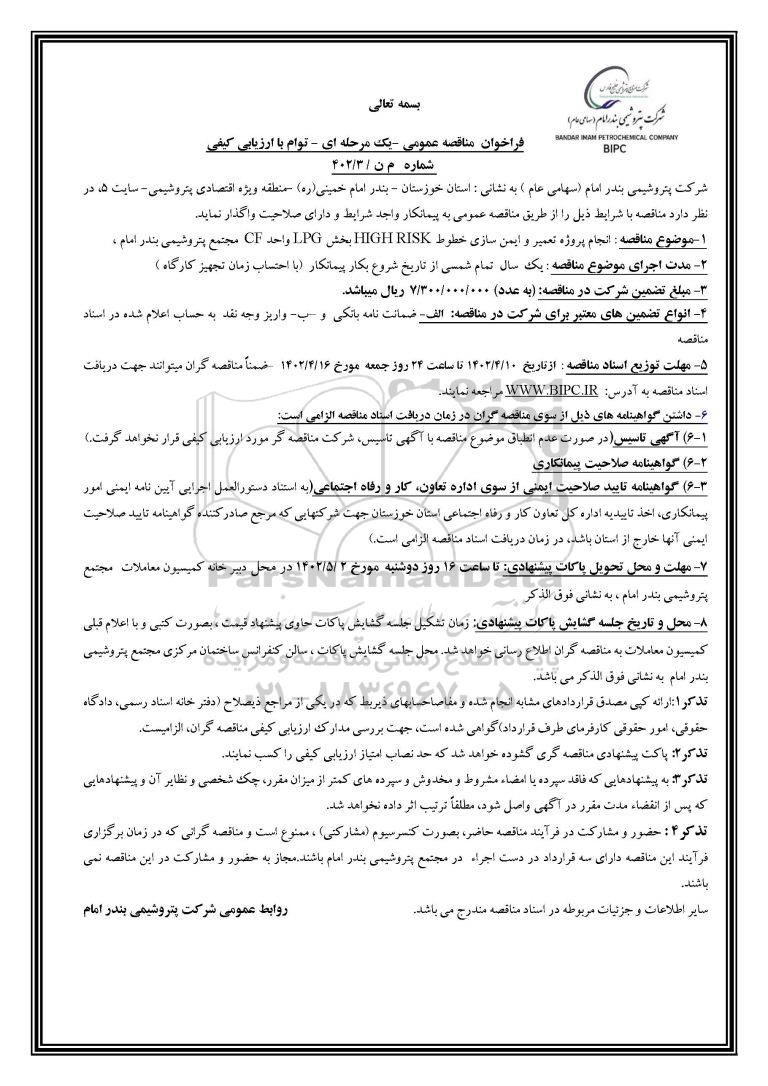 بسمه تعالی
شرکت پتروشیمی بندر امام (سهامی عام)
BANDAR IMAM PETROCHEMICAL COMPANY
BIPC
فراخوان مناقصه عمومی -یک مرحله ای - توام با ارزیابی کیفی
شماره م ن / ۴۰۲/۳
شرکت پتروشیمی بندر امام (سهامی عام ) به نشانی : استان خوزستان - بندر امام خمینی(ره) -منطقه ویژه اقتصادی پتروشیمی- سایت ۵، در
نظر دارد مناقصه با شرایط ذیل را از طریق مناقصه عمومی به پیمانکار واجد شرایط و دارای صلاحیت واگذار نماید.
۱-موضوع مناقصه : انجام پروژه تعمیر و ایمن سازی خطوط HIGH RISK بخش LPG واحد CF مجتمع پتروشیمی بندر امام ،
۲- مدت اجرای موضوع مناقصه : یک سال تمام شمسی از تاریخ شروع بکار پیمانکار (با احتساب زمان تجهیز کارگاه )
۳- مبلغ تضمین شرکت در مناقصه: (به عدد) ۷/۳۰۰/۰۰۰/۰۰۰ ریال میباشد.
۴- انواع تضمین های معتبر برای شرکت در مناقصه: الف- ضمانت نامه بانکی و –ب- واریز وجه نقد به حساب اعلام شده در اسناد
مناقصه
۵- مهلت توزیع اسناد مناقصه : ازتاریخ ۱۴۰۲/۴/۱۰ تا ساعت ۲۴ روز جمعه مورخ ۱۴۰۲/۴/۱۶ -ضمناً مناقصه گران میتوانند جهت دریافت
اسناد مناقصه به آدرس: WWW.BIPC.IR مراجعه نمایند.
۶- داشتن گواهینامه های ذیل از سوی مناقصه گران در زمان دریافت اسناد مناقصه الزامی است:
۶-۱) آگهی تاسیس(در صورت عدم انطباق موضوع مناقصه با آگهی تاسیس، شرکت مناقصه گر مورد ارزیابی کیفی قرار نخواهد گرفت.)
۶-۲) گواهینامه صلاحیت پیمانکاری
۶-۳) گواهینامه تایید صلاحیت ایمنی از سوی اداره تعاون، کار و رفاه اجتماعی(به استناد دستورالعمل اجرایی آیین نامه ایمنی امور
پیمانکاری، اخذ تاییدیه اداره کل تعاون کار و رفاه اجتماعی استان خوزستان جهت شرکتهایی که مرجع صادرکننده گواهینامه تایید صلاحیت
ایمنی آنها خارج از استان باشد، در زمان دریافت اسناد مناقصه الزامی است.)
۷- مهلت و محل تحویل پاکات پیشنهادی: تا ساعت ۱۶ روز دوشنبه مورخ ۱۴۰۲/۵/۲ در محل دبیر خانه کمیسیون معاملات مجتمع
پتروشیمی بندر امام ، به نشانی فوق الذکر
۸- محل و تاریخ جلسه گشایش پاکات پیشنهادی: زمان تشکیل جلسه گشایش پاکات حاوی پیشنهاد قیمت ، بصورت کتبی و با اعلام قبلی
کمیسیون معاملات به مناقصه گران اطلاع رسانی خواهد شد. محل جلسه گشایش پاکات ، سالن کنفرانس ساختمان مرکزی مجتمع پتروشیمی
بندر امام به نشانی فوق الذکر می باشد.
تذکر۱:ارائه کپی مصدق قراردادهای مشابه انجام شده و مفاصاحسابهای ذیربط که در یکی از مراجع ذیصلاح (دفتر خانه اسناد رسمی، دادگاه
حقوقی، امور حقوقی کارفرمای طرف قرارداد)گواهی شده است، جهت بررسی مدارک ارزیابی کیفی مناقصه گران، الزامیست.
تذکر۲: پاکت پیشنهادی مناقصه گری گشوده خواهد شد که حد نصاب امتیاز ارزیابی کیفی را کسب نمایند.
تذکر۳: به پیشنهادهایی که فاقد سپرده یا امضاء مشروط و مخدوش و سپرده های کمتر از میزان مقرر، چک شخصی و نظایر آن و پیشنهادهایی
که پس از انقضاء مدت مقرر در آگهی واصل شود، مطلقاً ترتیب اثر داده نخواهد شد.
تذکر۴ : حضور و مشارکت در فرآیند مناقصه حاضر، بصورت کنسرسیوم (مشارکتی) ، ممنوع است و مناقصه گرانی که در زمان برگزاری
فرآیند این مناقصه دارای سه قرارداد در دست اجراء در مجتمع پتروشیمی بندر امام باشند.مجاز به حضور و مشارکت در این مناقصه نمی
باشند.
سایر اطلاعات و جزئیات مربوطه در اسناد مناقصه مندرج می باشد.
روابط عمومی شرکت پتروشیمی بندر امام
ParsNamadData
پایگاه اطلاع رسانی مناقصه و مزایده
۰۲۱-۸۸۳۴۹۶۷۰-۵